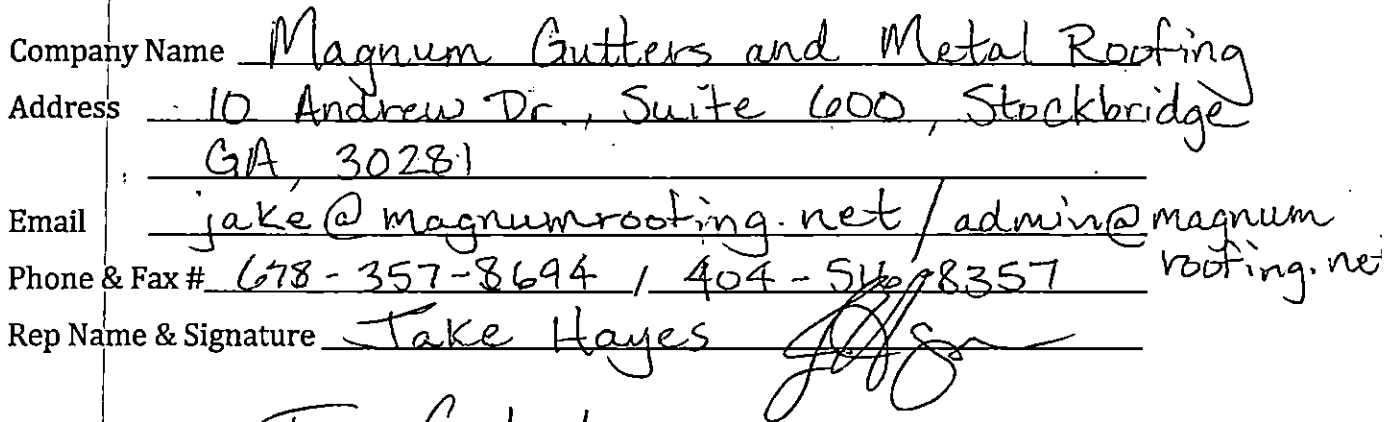 Company Name Magnum Gutters and Metal Roofing
Address 10 Andrew Dr., Suite 600, Stockbridge
GA, 30281
Email jake@magnumroofing.net / admin@magnum
roofing.net
Phone & Fax # 678-357-8694 / 404- 8357
Rep Name & Signature Jake Hayes